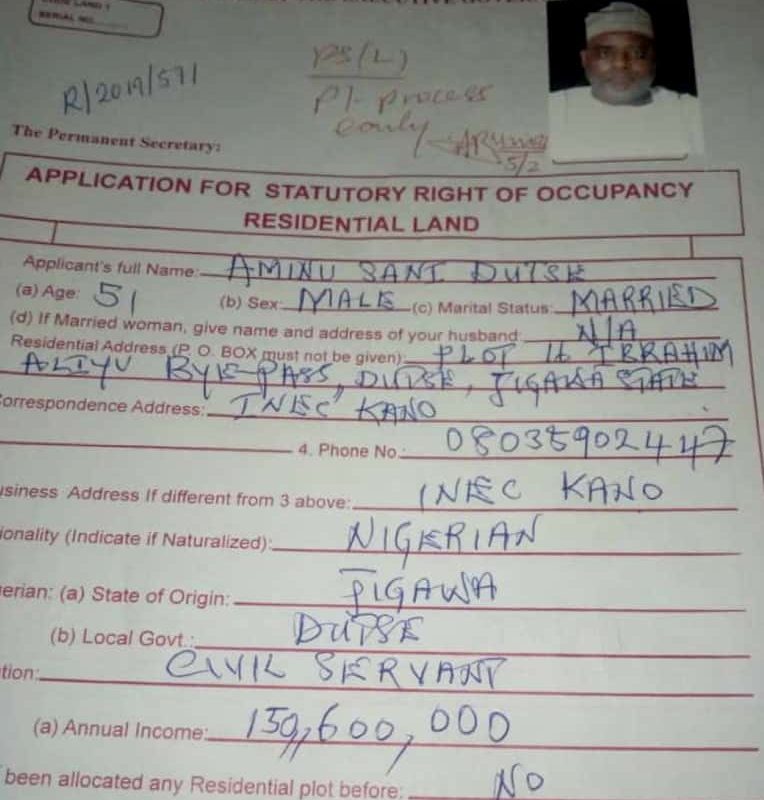 SERIAL NO.
R/2019/571
PS(L)
P/- process
The Permanent Secretary:
5/2
APPLICATION FOR STATUTORY RIGHT OF OCCUPANCY
RESIDENTIAL LAND
Applicant's full Name: AMINU SANI DUTSE
(a) Age: 51 (b) Sex: MALE (c) Marital Status: MARRIED
(d) If Married woman, give name and address of your husband: N/A
Residential Address (P. O. BOX must not be given): PLOT 16 IBRAHIM
ALIYU BYE-PASS, DUTSE, JIGAWA STATE
orrespondence Address: INEC KANO
4. Phone No.: 08035902447
usiness Address If different from 3 above: INEC KANO
ionality (Indicate if Naturalized): NIGERIAN
erian: (a) State of Origin: JIGAWA
(b) Local Govt.: DUTSE
tion: CIVIL SERVANT
(a) Annual Income: 150,600,000
been allocated any Residential plot before: NO